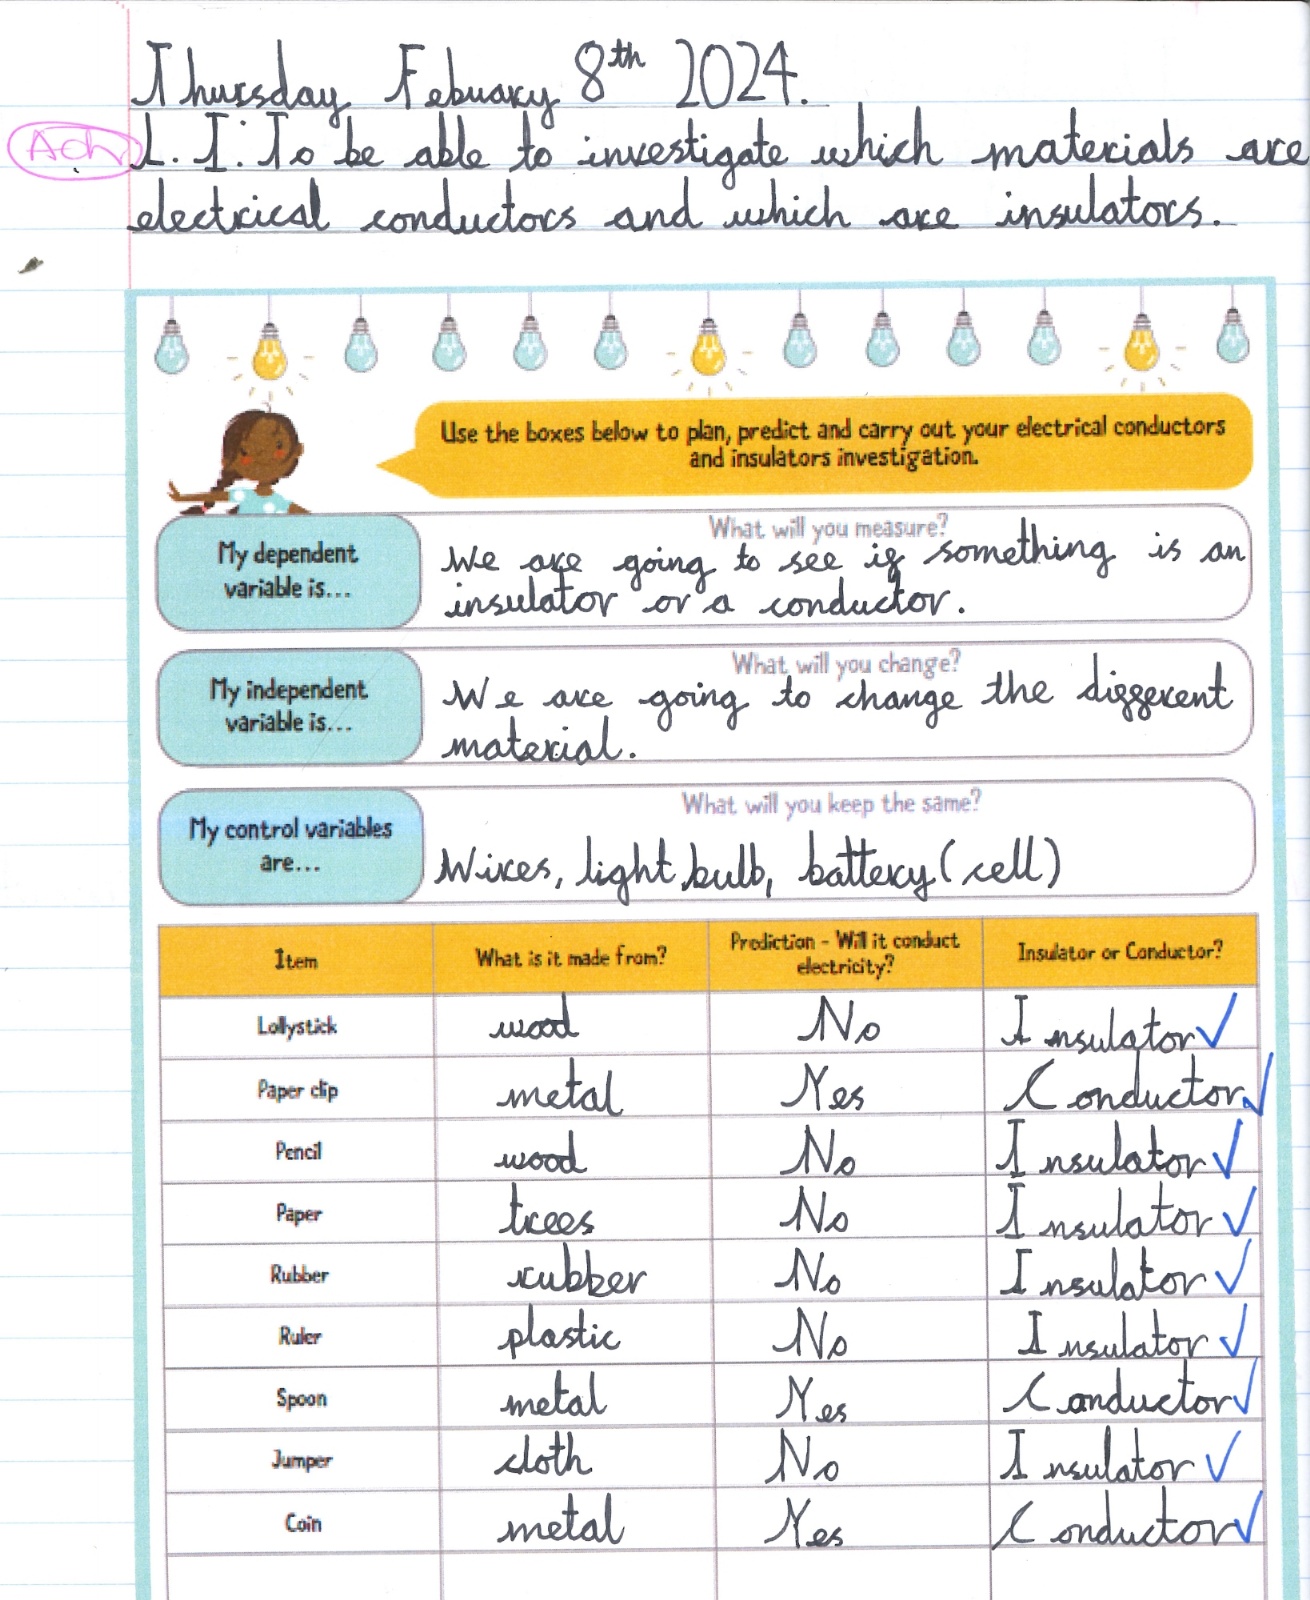 Thursday Febuary 8th 2024.
Ach
L.I: To be able to investigate which materials are
electrical conductors and which are insulators.
Use the boxes below to plan, predict and carry out your electrical conductors
and insulators investigation.
My dependent
variable is...
What will you measure?
We are going to see if something is an
insulator or a conductor.
My independent
variable is...
What will you change?
We are going to change the different
material.
My control variables
are...
What will you keep the same?
Wires, light bulb, battery (cell)
Item What is it made from? Prediction - Will it conduct electricity? Insulator or Conductor?
Lollystick wood No Insulator ✓
Paper clip metal Yes Conductor ✓
Pencil wood No Insulator ✓
Paper trees No Insulator ✓
Rubber rubber No Insulator ✓
Ruler plastic No Insulator ✓
Spoon metal Yes Conductor ✓
Jumper cloth No Insulator ✓
Coin metal Yes Conductor ✓